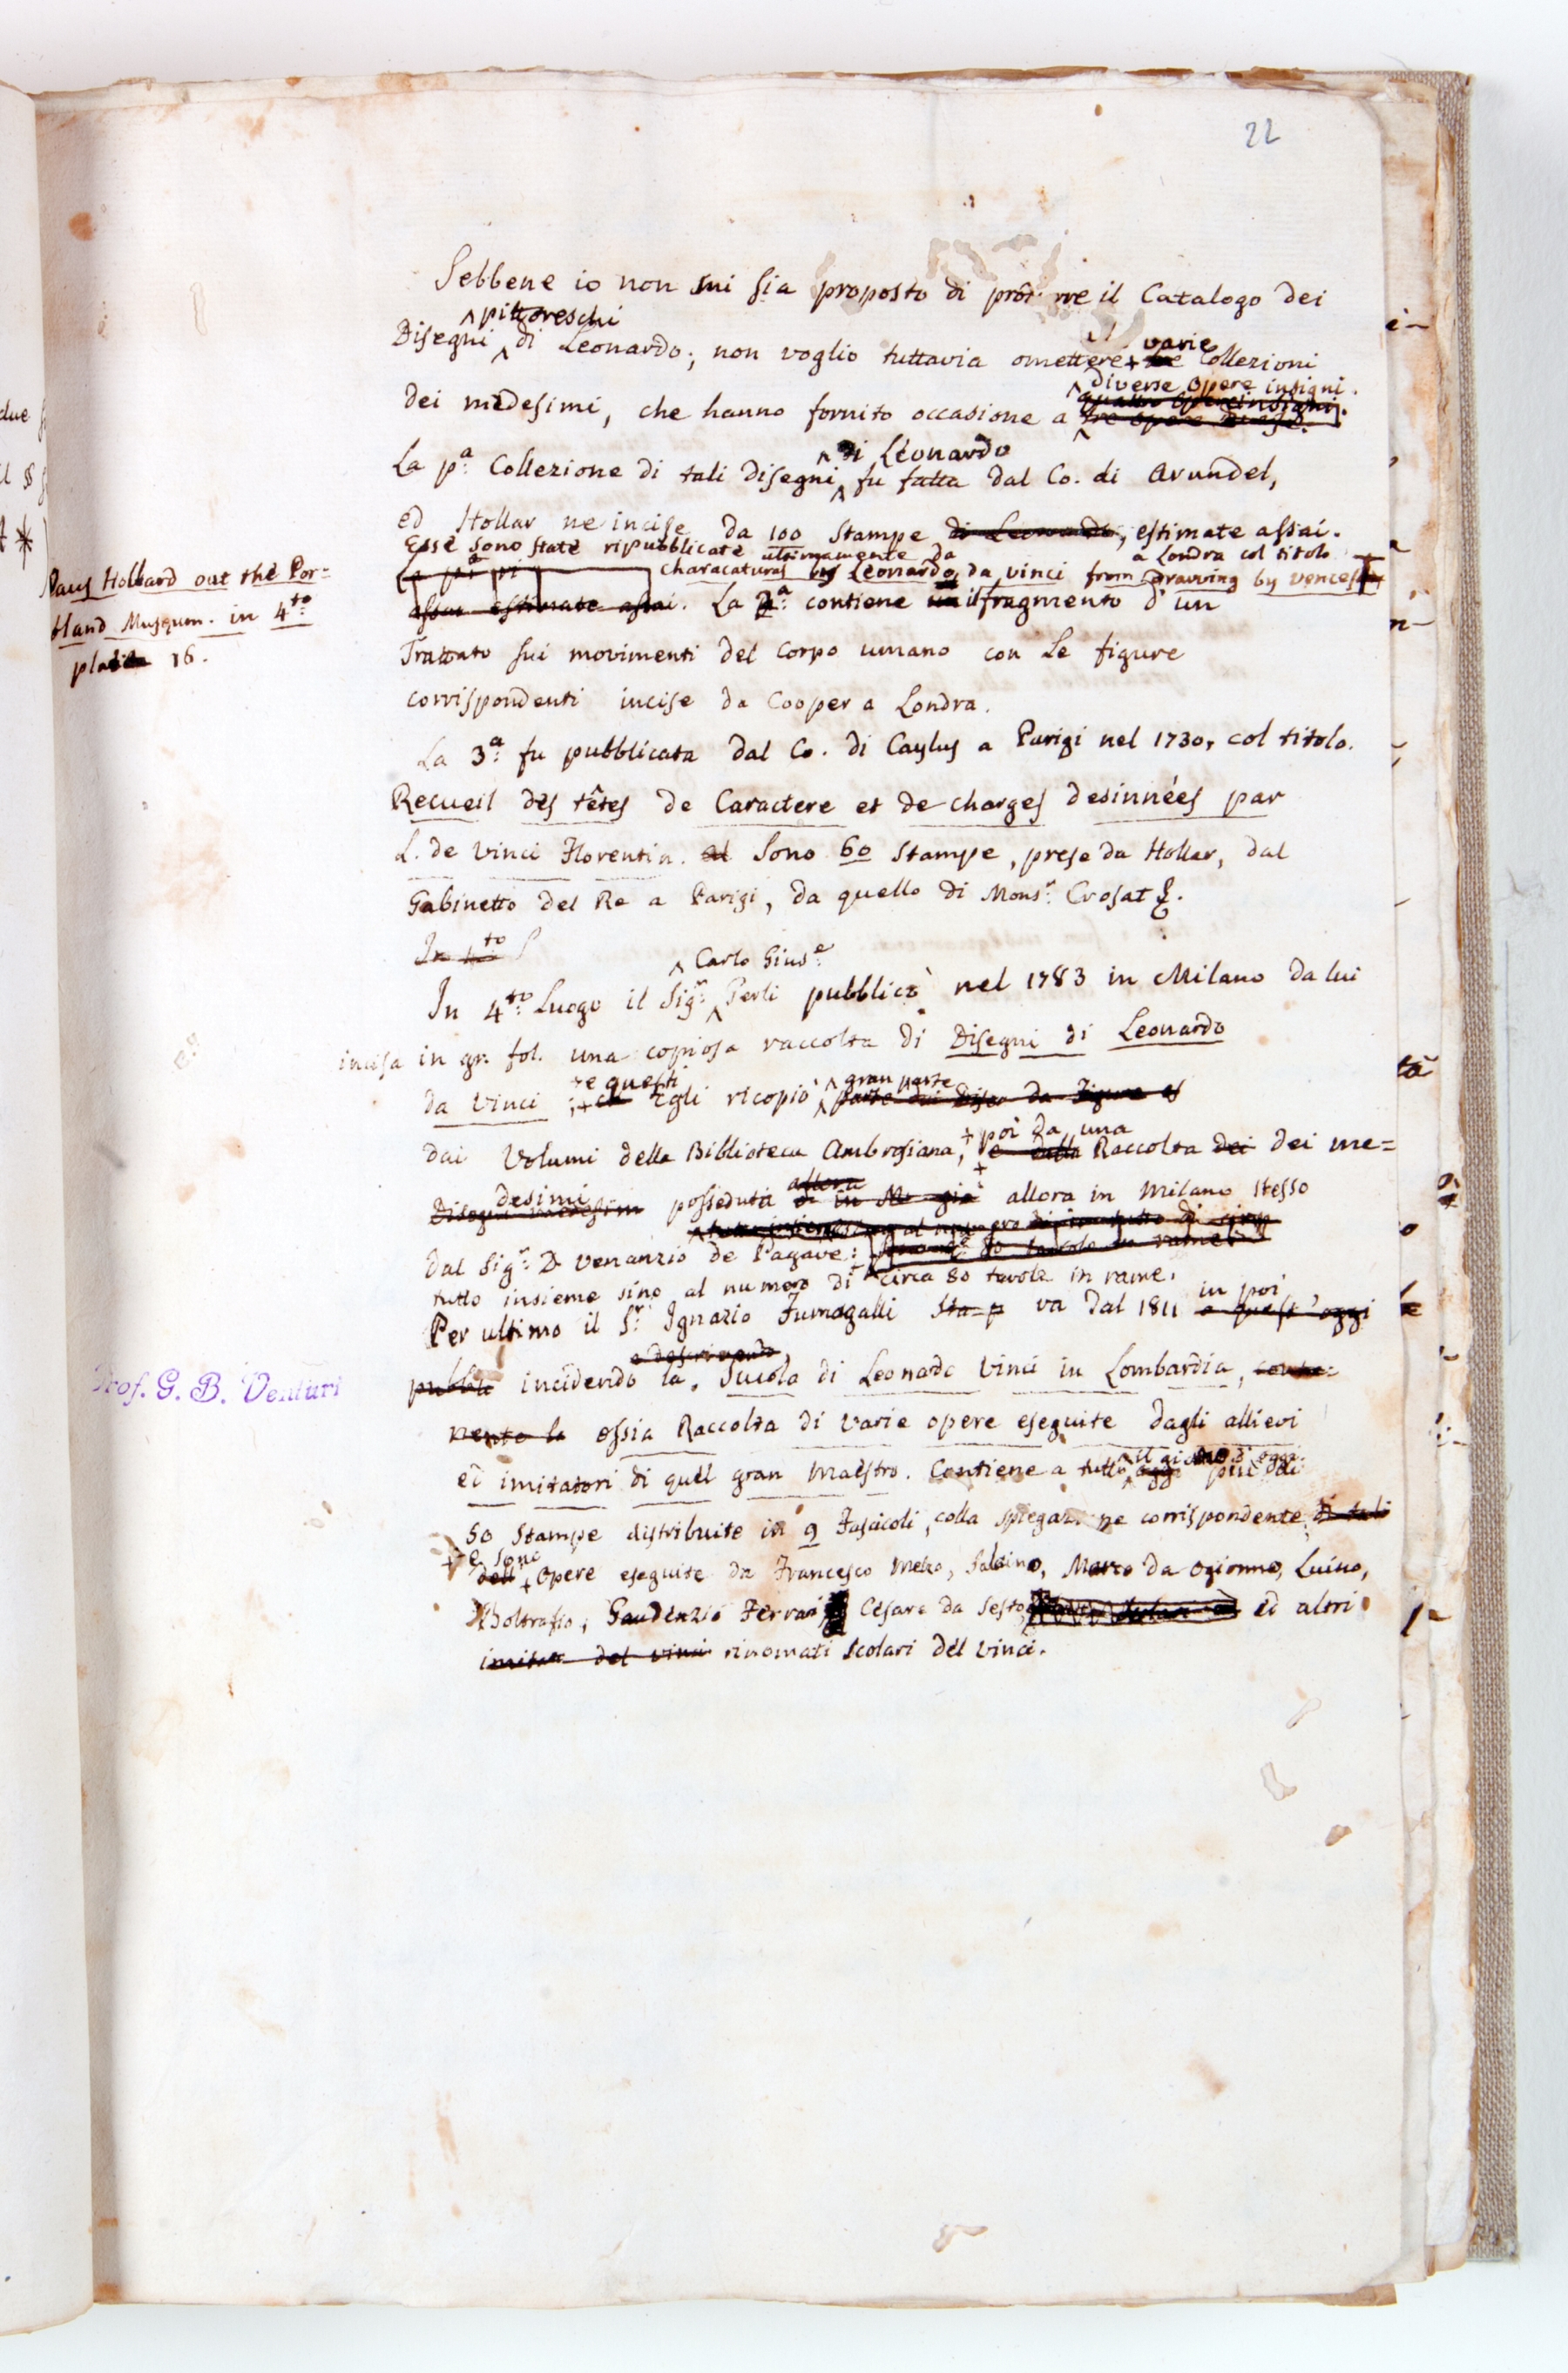 22
Sebbene io non mi sia proposto di il Catalogo dei
Disegni ^ pittoreschi di Leonardo; non voglio tuttavia omettere + varie Collezioni
dei medesimi, che hanno fornito occasione a diverse opere insigni.
La pª. Collezione di tali disegni ^ di Leonardo fu fatta dal Co. di Arundel,
ed Hollar ne incise da 100 Stampe di Leonardo, estimate assai.
Esse sono state ripubblicate ultimamente da a Londra col titolo
characaturas by Leonardo da vinci from Gravving by vences
Paus Hollard out the Por=
tland Musqum. in 4to
16.
assai estimate assai. La 2ª. contiene il fragmento d'un
Trattato sui movimenti del corpo umano con le figure
corrispondenti incise da Cooper a Londra.
La 3ª. fu pubblicata dal Co. di Caylus a Parigi nel 1730, col titolo.
Recueil des têtes de Caractere et de charges desinnées par
L. de Vinci Florentin. Sono 60 Stampe, prese da Hollar, dal
Gabinetto del Re a Parigi, da quello di Monsr. Crosat &.
In 4to
In 4to. Luogo il Sigr. ^ Carlo Giuse. Gerli pubblicò nel 1783 in Milano da lui
incisa in gr. fol. una copiosa raccolta di Disegni di Leonardo
da Vinci; + e questi Egli ricopiò ^ gran parte
dai Volumi della Biblioteca Ambrosiana, + poi da una e dalla Raccolta dei dei me=
desimi posseduta allora in Milano stesso
dal Sigr. D. Venanzio de Pagave:
tutto insieme sino al numero di circa 80 tavole in rame.
Per ultimo il Sr. Ignazio Fumagalli va dal 1811 in poi
incidendo la Scuola di Leonardo Vinci in Lombardia, conte=
nente la ossia Raccolta di varie opere eseguite dagli allievi
ed imitatori di quel gran Maestro. Contiene a tutto ^ il giorno di oggi più di
50 Stampe distribuite in 9 Fascicoli, colla corrispondente, di tali
+ e sono opere eseguite da Francesco Melzo, Salaino, Marco da Ogionno, Luino,
Boltrafio, Gaudenzio Ferrari Cesare da Sesto ed altri
del vinci rinomati Scolari del Vinci.
Prof. G. B. Venturi